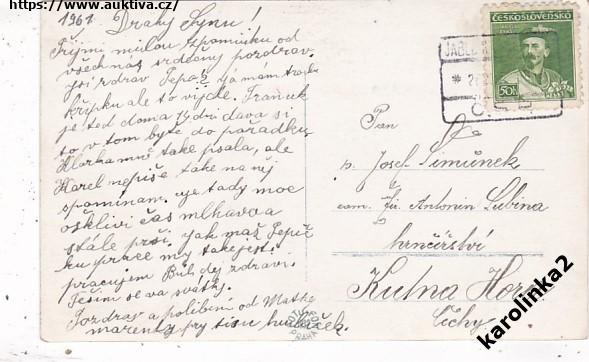 https://www.auktiva.cz/
1961 Drahý Synu!
Přijmi milou vzpomínku od
všech nas srdečny pozdrav.
jsi zdrav Pepaž ja mám trochu
křipku ale to vijde. Franck
je ted doma 14 dni dava si
to v tom byte do pařadku
Klarka mně take psala, ale
Karel nepiše take na něj
spominam. uje tady moc
oškliví čas mlhava a
stále prši. jak maš Pepič
ku prace my take jesti
pracujem Bůh dej zdravi.
Tešim se va svatky.
Pozdrav a polibeni od Matky
mařenky
ČESKOSLOVENSKO
50h
Pan
p. Josef Šimůnek
zam. fir. Antonin Lubina
hrnčěřství
Kutna Hora
Čechy
karolinka2